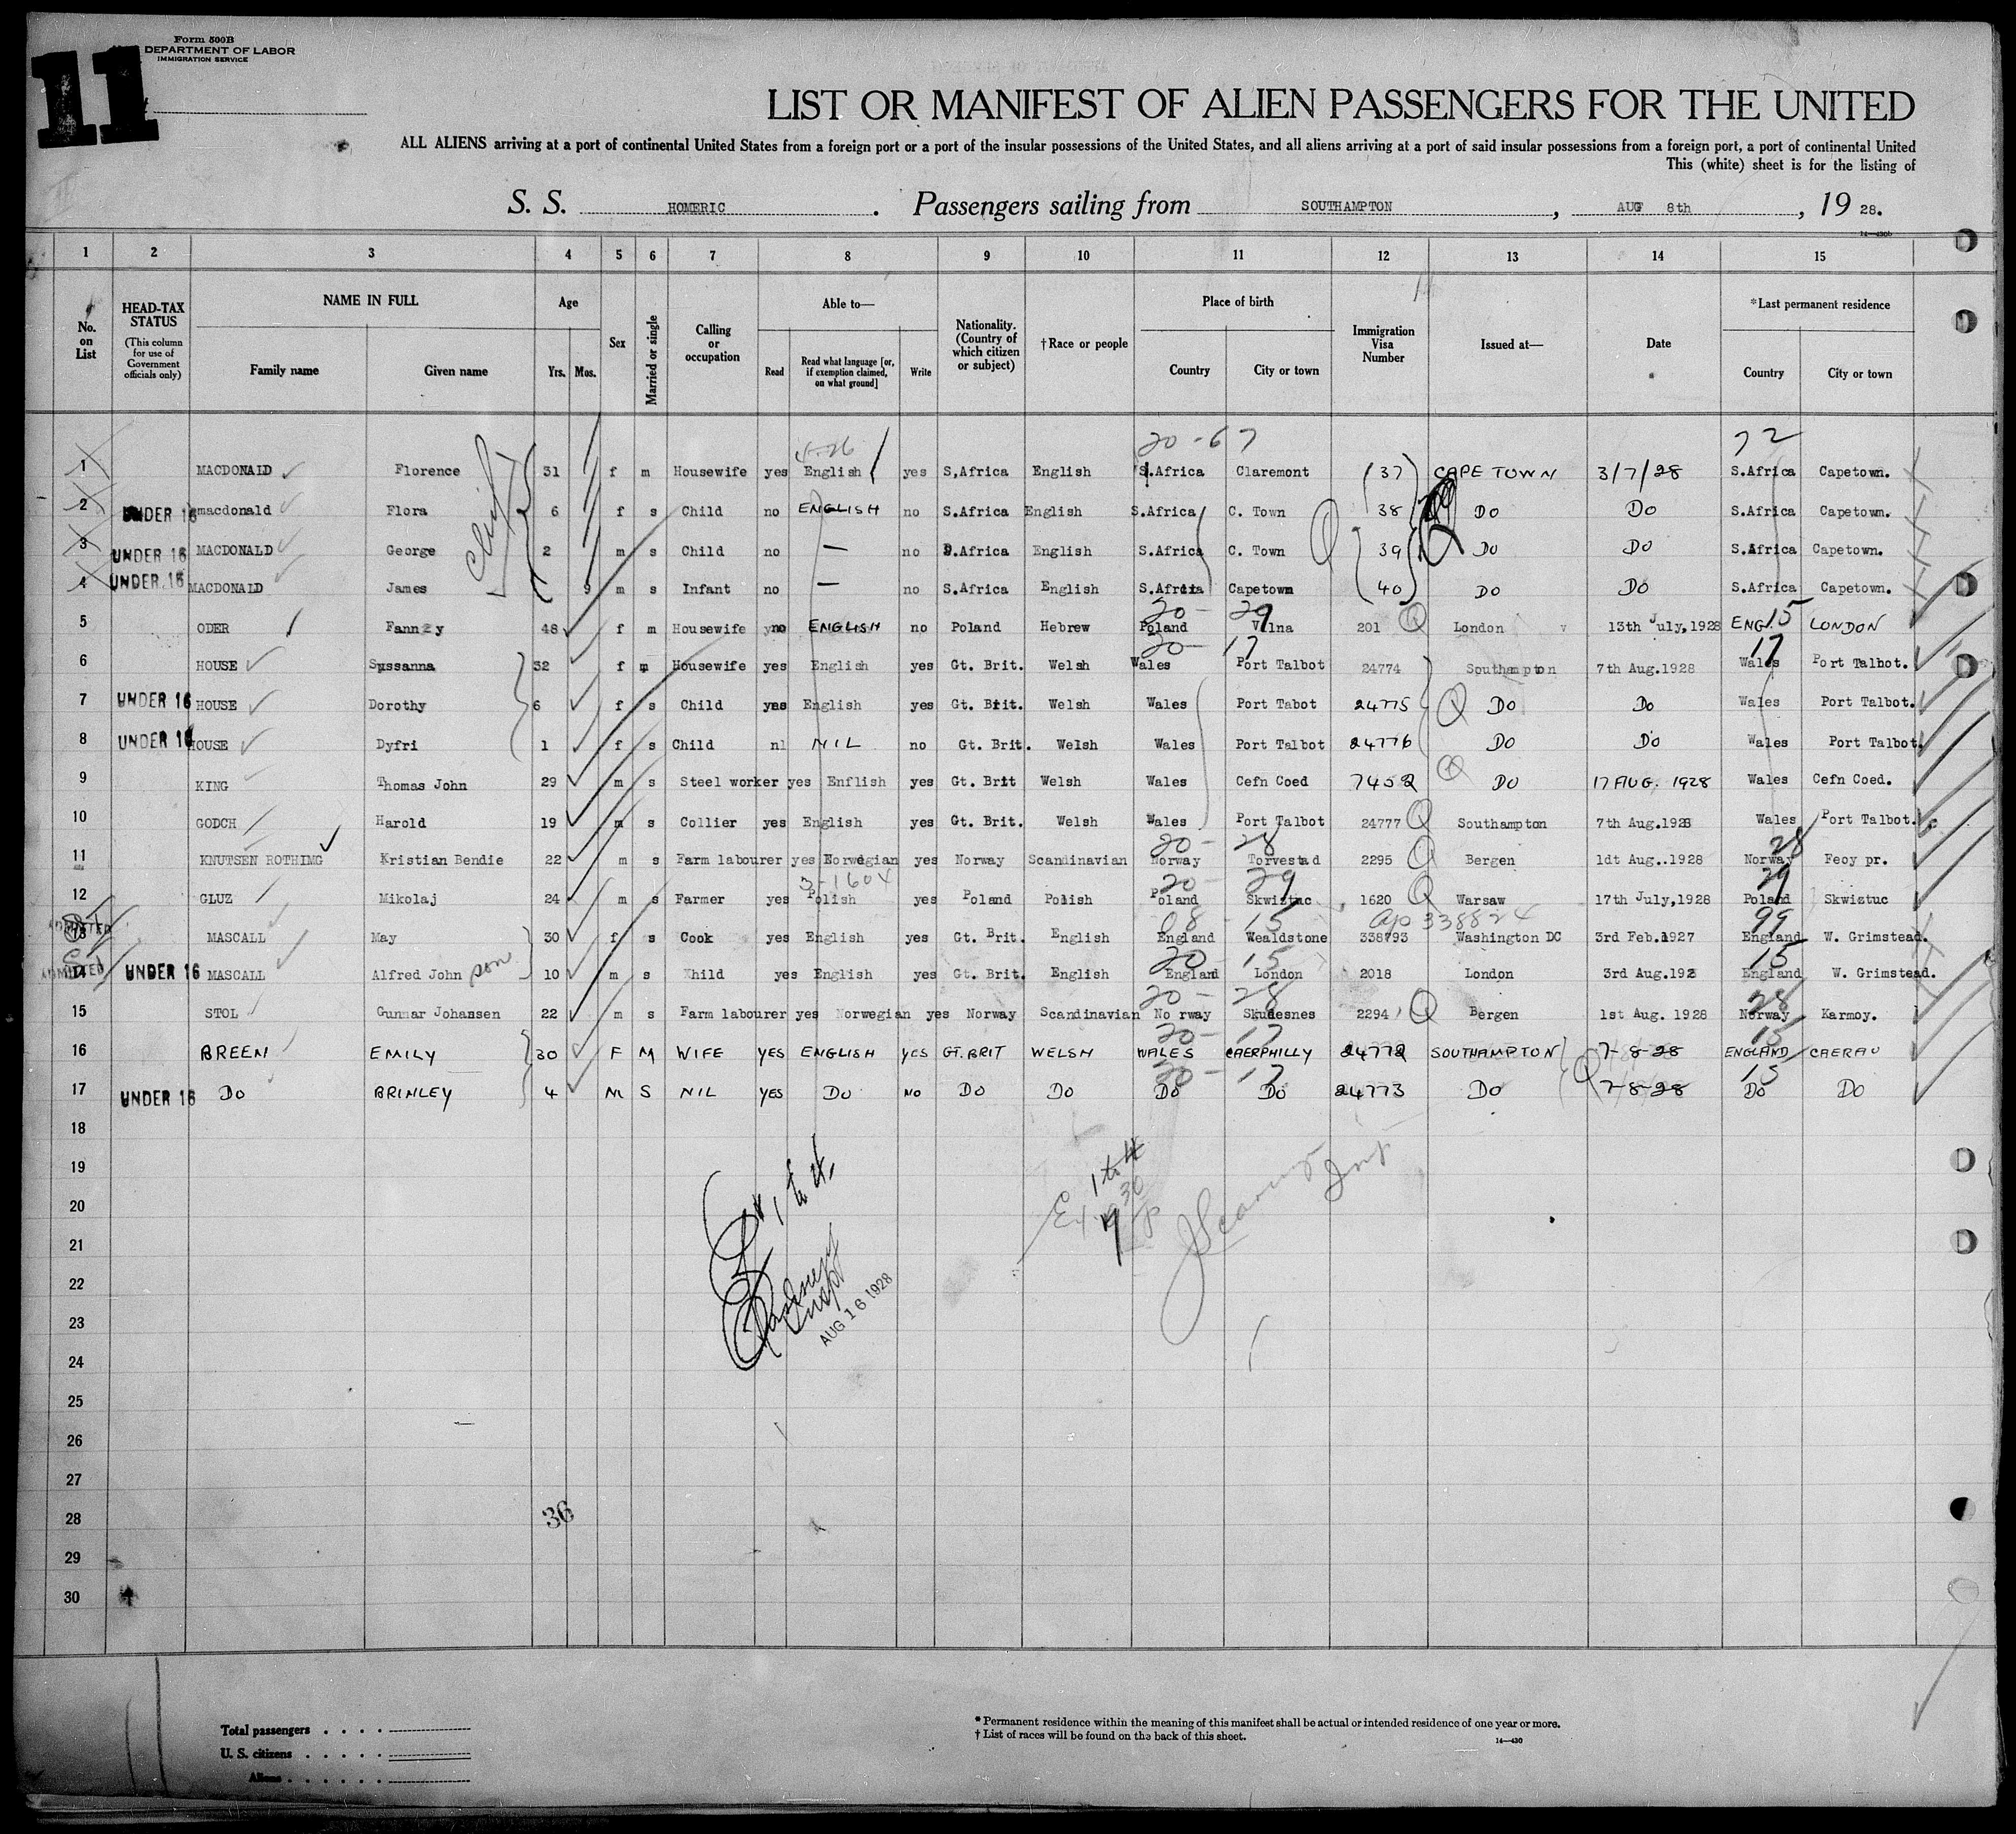 Form 500B
DEPARTMENT OF LABOR
IMMIGRATION SERVICE
11
LIST OR MANIFEST OF ALIEN PASSENGERS FOR THE UNITED
ALL ALIENS arriving at a port of continental United States from a foreign port or a port of the insular possessions of the United States, and all aliens arriving at a port of said insular possessions from a foreign port, a port of continental United
This (white) sheet is for the listing of
S. S. HOMERIC . Passengers sailing from SOUTHAMPTON , AUG 8th , 19 28.
14—430b
1 2 3 4 5 6 7 8 9 10 11 12 13 14 15
No. on List
HEAD-TAX STATUS (This column for use of Government officials only)
NAME IN FULL Family name Given name
Age Yrs. Mos.
Sex
Married or single
Calling or occupation
Able to— Read Read what language [or, if exemption claimed, on what ground] Write
Nationality. (Country of which citizen or subject)
†Race or people
Place of birth Country City or town
Immigration Visa Number
Issued at—
Date
*Last permanent residence Country City or town
4-26 20-67 72
1 MACDONALD Florence 31 f m Housewife yes English yes S,Africa English S.Africa Claremont 37 CAPE TOWN 3/7/28 S.Africa Capetown.
2 UNDER 16 macdonald Flora 6 f s Child no ENGLISH no S.Africa English S.Africa C. Town 38 DO DO S.Africa Capetown.
3 UNDER 16 MACDONALD George 2 m s Child no — no S.Africa English S.Africa C. Town 39 DO DO S.Africa Capetown.
4 UNDER 16 MACDONALD James 9 m s Infant no — no S.Africa English S.Africa Capetown 40 DO DO S.Africa Capetown.
20- 29 15
5 ODER Fanny 48 f m Housewife no ENGLISH no Poland Hebrew Poland Vilna 201 London 13th July,1928 ENG. LONDON
20- 17 17
6 HOUSE Sussanna 32 f m Housewife yes English yes Gt. Brit. Welsh Wales Port Talbot 24774 Southampton 7th Aug.1928 Wales Port Talbot.
7 UNDER 16 HOUSE Dorothy 6 f s Child yes English yes Gt. Brit. Welsh Wales Port Tabot 24775 DO Do Wales Port Talbot.
8 UNDER 16 HOUSE Dyfri 1 f s Child nl NIL no Gt. Brit. Welsh Wales Port Talbot 24776 DO DO Wales Port Talbot.
9 KING Thomas John 29 m s Steel worker yes Enflish yes Gt. Brit Welsh Wales Cefn Coed 7452 DO 17 AUG. 1928 Wales Cefn Coed.
10 GODCH Harold 19 m s Collier yes English yes Gt. Brit. Welsh Wales Port Talbot 24777 Southampton 7th Aug.1928 Wales Port Talbot.
20- 28 28
11 KNUTSEN ROTHING Kristian Bendie 22 m s Farm labourer yes Norwegian yes Norway Scandinavian Norway Torvestad 2295 Bergen 1dt Aug..1928 Norway Feoy pr.
3-1604 20- 29 29
12 GLUZ Mikolaj 24 m s Farmer yes Polish yes Poland Polish Poland Skwistuc 1620 Warsaw 17th July,1928 Poland Skwistuc
08 - 15 a/o 338824 99
13 MASCALL May 30 f s Cook yes English yes Gt. Brit. English England Wealdstone 338793 Washington DC 3rd Feb.1927 England W. Grimstead.
20- 15 15
14 ADMITTED UNDER 16 MASCALL Alfred John son 10 m s Xhild yes English yes Gt. Brit. English England London 2018 London 3rd Aug.192 England W. Grimstead.
20- 28 28
15 STOL Gunnar Johansen 22 m s Farm labourer yes Norwegian yes Norway Scandinavian No rway Skudesnes 2294 Bergen 1st Aug. 1928 Norway Karmoy.
20- 17 15
16 BREEN EMILY 30 F M WIFE YES ENGLISH YES GT. BRIT WELSH WALES CAERPHILLY 24772 SOUTHAMPTON 7-8-28 ENGLAND CAERAU
20- 17 15
17 UNDER 16 DO BRINLEY 4 M S NIL YES DO NO DO DO DO DO 24773 DO 7-8-28 DO DO
18
19
20
21
22
23
24
25
26
27
28
29
30
1 to 4
AUG 16 1928
36
Total passengers
U. S. citizens
Aliens
* Permanent residence within the meaning of this manifest shall be actual or intended residence of one year or more.
† List of races will be found on the back of this sheet.
14—430